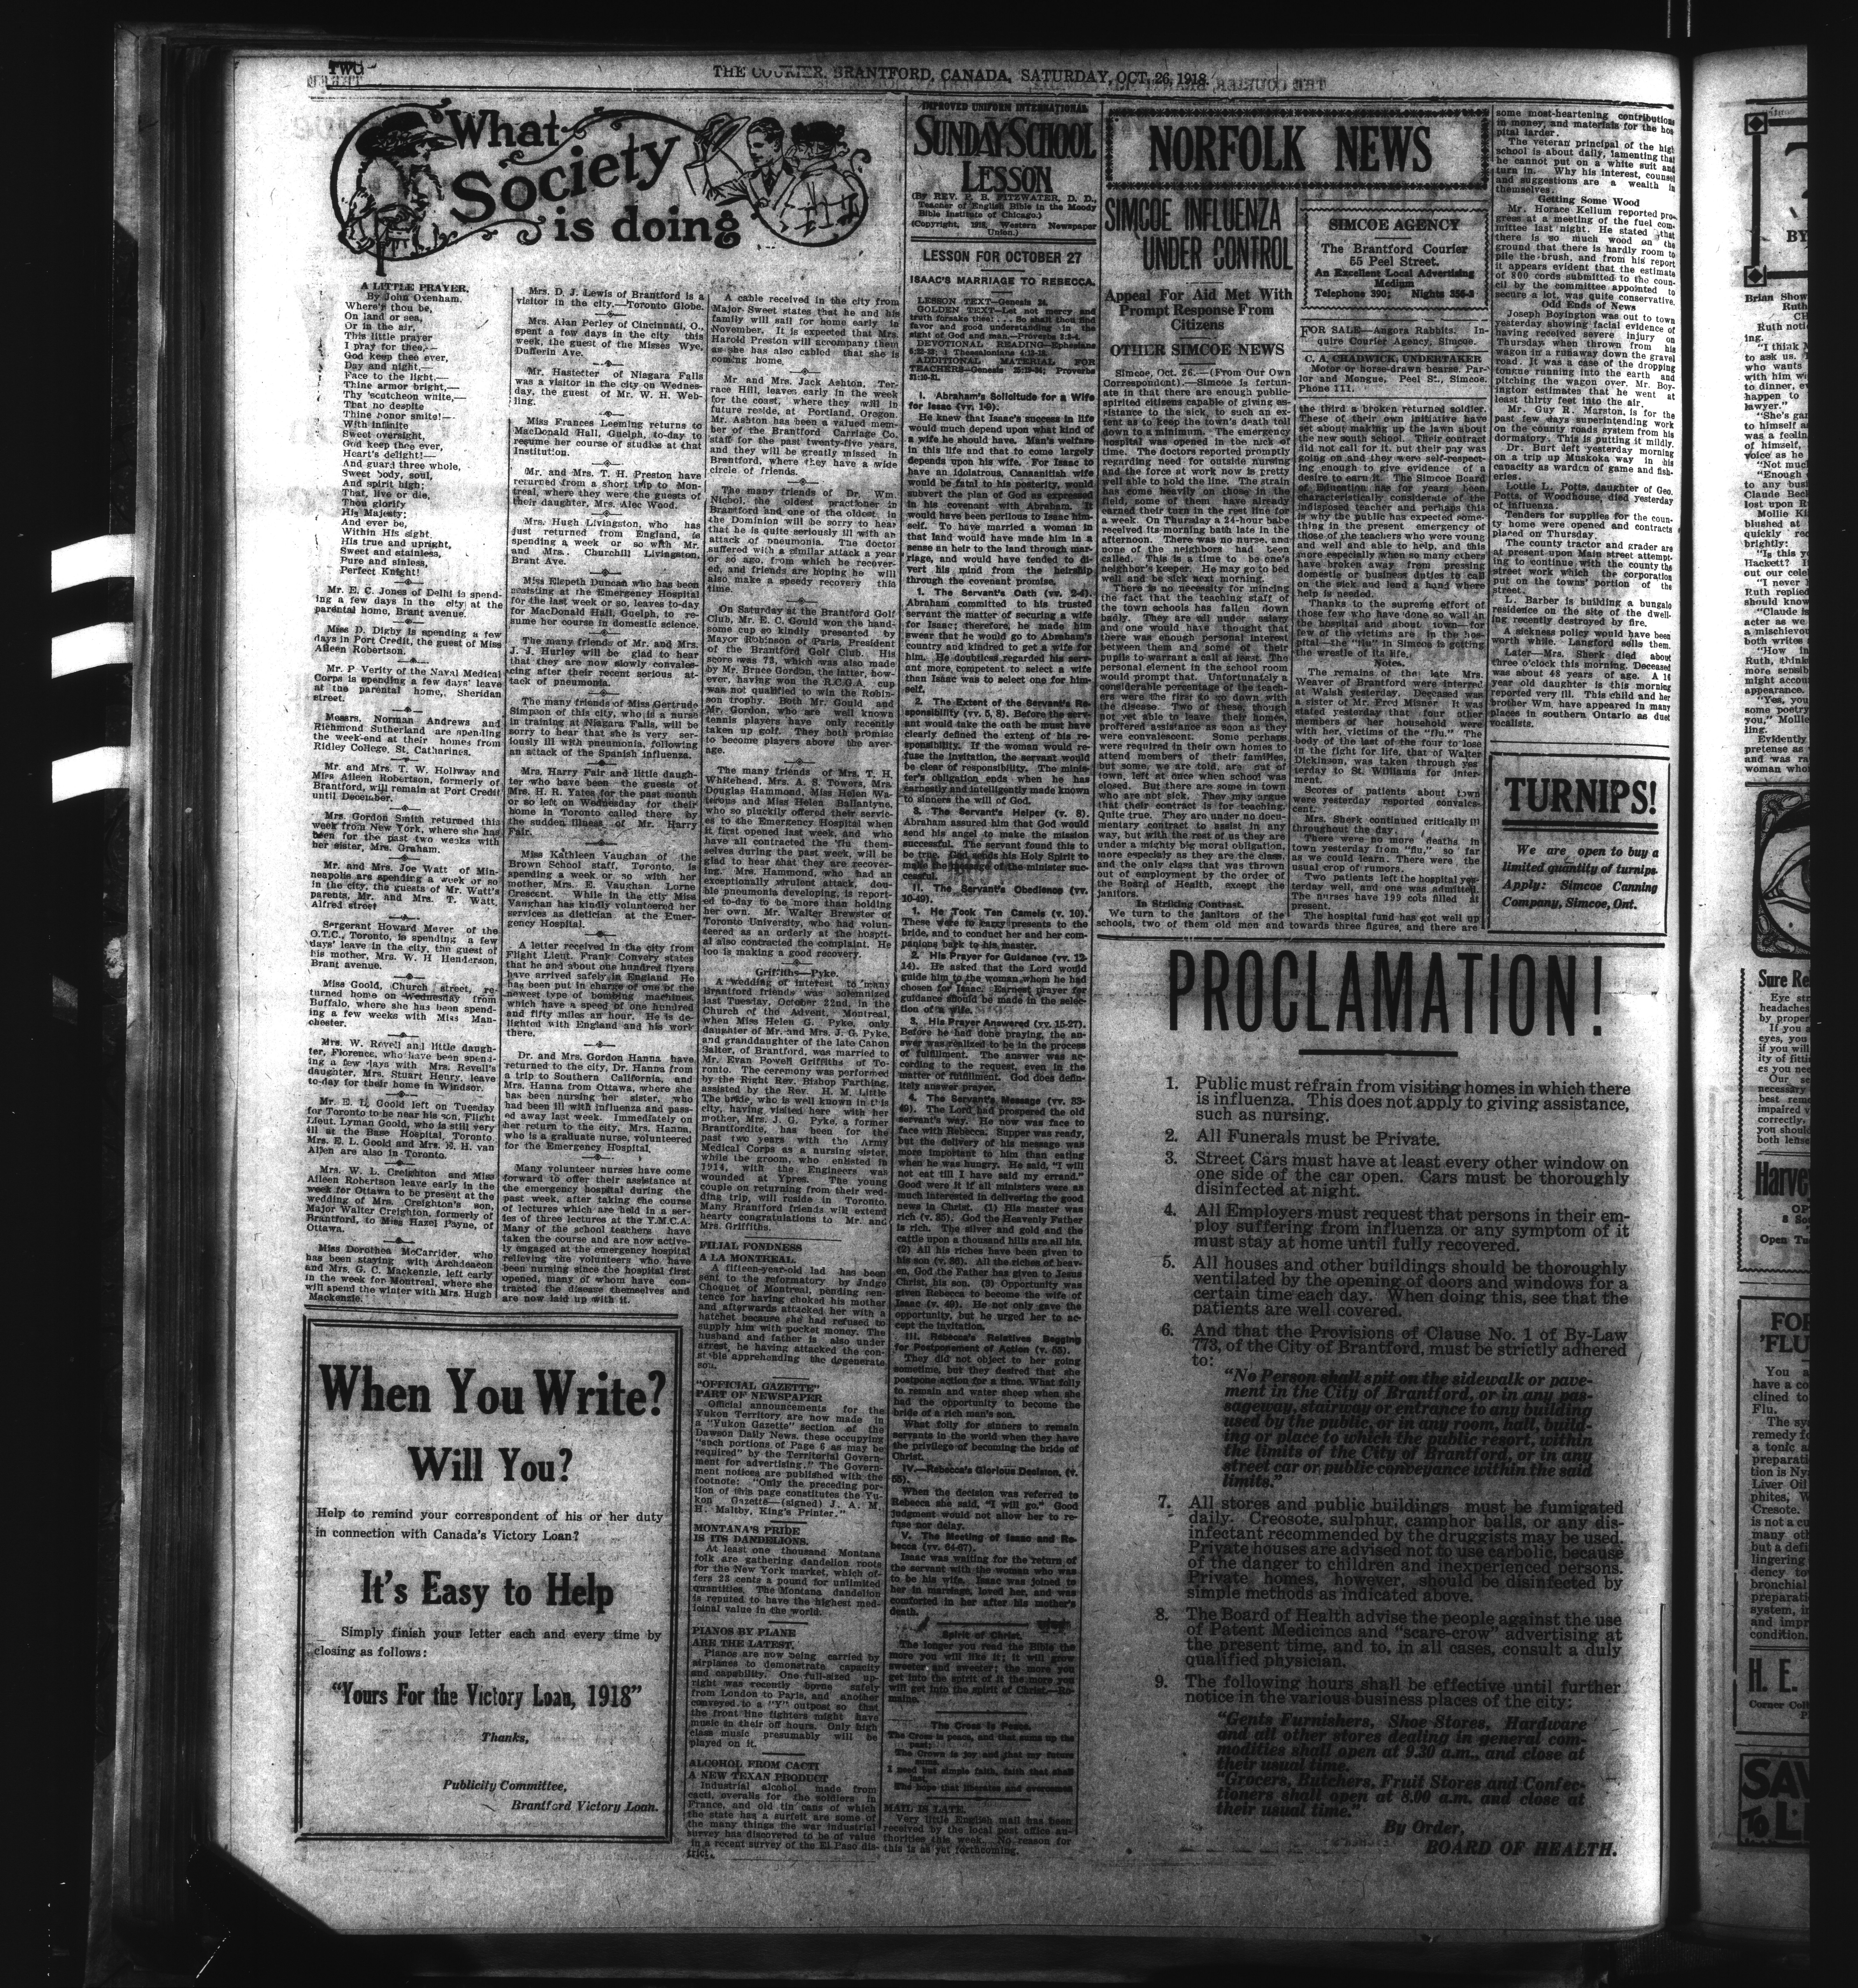 TWO
THE COURIER, BRANTFORD, CANADA, SATURDAY, OCT. 26, 1918.
What
Society
is doing
A LITTLE PRAYER.
By John Oxenham.
Where's thou be,
On land or sea,
Or in the air,
This little prayer
I pray for thee,—
God keep thee ever,
Day and night,—
Face to the light,—
Thine armor bright,—
Thy 'scutcheon white,—
That no despite
Thine honor smite!—
With infinite
Sweet oversight,
God keep thee ever,
Heart's delight!—
And guard three whole,
Sweet body, soul,
And spirit high;
That, live or die,
Thou glorify
His Majesty;
And ever be,
Within His sight,
His true and upright,
Sweet and stainless,
Pure and sinless,
Perfect Knight!
Mr. E. C. Jones of Delhi is spend-
ing a few days in the city at the
parental home, Brant avenue.
Miss D. Digby is spending a few
days in Port Credit, the guest of Miss
Aileen Robertson.
Mr. P Verity of the Naval Medical
Corps is spending a few days' leave
at the parental home, Sheridan
street.
Messrs. Norman Andrews and
Richmond Sutherland are spending
the week-end at their homes from
Ridley College, St. Catharines.
Mr. and Mrs. T. W. Hollway and
Miss Aileen Robertson, formerly of
Brantford, will remain at Port Credit
until December.
Mrs. Gordon Smith returned this
week from New York, where she has
been for the past two weeks with
her sister, Mrs. Graham.
Mr. and Mrs. Joe Watt of Min-
neapolis are spending a week or so
in the city, the guests of Mr. Watt's
parents, Mr. and Mrs. T. Watt,
Alfred street
Sergeant Howard Meyer of the
O.T.C., Toronto, is spending a few
days' leave in the city, the guest of
his mother, Mrs. W. H Henderson,
Brant avenue.
Miss Goold, Church street, re-
turned home on Wednesday from
Buffalo, where she has been spend-
ing a few weeks with Miss Man-
chester.
Mrs. W. Revell and little daugh-
ter, Florence, who have been spend-
ing a few days with Mrs. Revell's
daughter, Mrs. Stuart Henry, leave
to-day for their home in Windsor.
Mr. E. L. Goold left on Tuesday
for Toronto to be near his son, Flight
Lieut. Lyman Goold, who is still very
ill at the Base Hospital, Toronto.
Mrs. E. L. Goold and Mrs. E. H. van
Allen are also in Toronto.
Mrs. W. L. Creighton and Miss
Aileen Robertson leave early in the
week for Ottawa to be present at the
wedding of Mrs. Creighton's son,
Major Walter Creighton, formerly of
Brantford, to Miss Hazel Payne, of
Ottawa.
Miss Dorothea McCarrider, who
has been staying with Archdeacon
and Mrs. G. C. Mackenzie, left early
in the week for Montreal, where she
will spend the winter with Mrs. Hugh
Mackenzie.
Mrs. D. J. Lewis of Brantford is a
visitor in the city.—Toronto Globe.
Mrs. Alan Perley of Cincinnati, O.,
spent a few days in the city this
week, the guest of the Misses Wye,
Dufferin Ave.
Mr. Hastetter of Niagara Falls
was a visitor in the city on Wednes-
day, the guest of Mr. W. H. Web-
ling.
Miss Frances Leeming returns to
MacDonald Hall, Guelph, to-day to
resume her course of studies at that
Institution.
Mr. and Mrs. T. H. Preston have
returned from a short trip to Mon-
treal, where they were the guests of
their daughter, Mrs. Alec Wood.
Mrs. Hugh Livingston, who has
just returned from England, is
spending a week or so with Mr.
and Mrs. Churchill Livingston,
Brant Ave.
Miss Elspeth Duncan who has been
assisting at the Emergency Hospital
for the last week or so, leaves to-day
for MacDonald Hall, Guelph, to re-
sume her course in domestic science.
The many friends of Mr. and Mrs.
J. J. Hurley will be glad to hear
that they are now slowly convales-
cing after their recent serious at-
tack of pneumonia.
The many friends of Miss Gertrude
Simpson of this city, who is a nurse
in training at Niagara Falls, will be
sorry to hear that she is very ser-
iously ill with pneumonia, following
an attack of the Spanish influenza.
Mrs. Harry Fair and little daugh-
ter who have been the guests of
Mrs. H. R. Yates for the past month
or so left on Wednesday for their
home in Toronto called there by
the sudden illness of Mr. Harry
Fair.
Miss Kathleen Vaughan of the
Brown School staff, Toronto, is
spending a week or so with her
mother, Mrs. E. Vaughan, Lorne
Crescent. While in the city Miss
Vaughan has kindly volunteered her
services as dietician at the Emer-
gency Hospital.
A letter received in the city from
Flight Lieut. Frank Convery states
that he and about one hundred flyers
have arrived safely in England He
has been put in charge of one of the
newest type of bombing machines,
which have a speed of one hundred
and fifty miles an hour. He is de-
lighted with England and his work
there.
Dr. and Mrs. Gordon Hanna have
returned to the city, Dr. Hanna from
a trip to Southern California, and
Mrs. Hanna from Ottawa, where she
has been nursing her sister, who
had been ill with influenza and pass-
ed away last week. Immediately on
her return to the city, Mrs. Hanna,
who is a graduate nurse, volunteered
for the Emergency Hospital.
Many volunteer nurses have come
forward to offer their assistance at
the emergency hospital during the
past week, after taking the course
of lectures which are held in a ser-
ies of three lectures at the Y.M.C.A.
Many of the school teachers have
taken the course and are now active-
ly engaged at the emergency hospital
relieving the volunteers who have
been nursing since the hospital first
opened, many of whom have con-
tracted the disease themselves and
are now laid up with it.
A cable received in the city from
Major Sweet states that he and his
family will sail for home early in
November. It is expected that Mrs.
Harold Preston will accompany them
as she has also cabled that she is
coming home.
Mr. and Mrs. Jack Ashton, Ter-
race Hill, leaves early in the week
for the coast, where they will in
future reside, at Portland, Oregon.
Mr. Ashton has been a valued mem-
ber of the Brantford Carriage Co.
staff for the past twenty-five years,
and they will be greatly missed in
Brantford, where they have a wide
circle of friends.
The many friends of Dr. Wm.
Nichol, the oldest practioner in
Brantford and one of the oldest in
the Dominion will be sorry to hear
that he is quite seriously ill with an
attack of pneumonia. The doctor
suffered with a similar attack a year
or so ago, from which he recover-
ed, and friends are hoping he will
also make a speedy recovery this
time.
On Saturday at the Brantford Golf
Club, Mr. E. C. Gould won the hand-
some cup so kindly presented by
Mayor Robinson of Paris, President
of the Brantford Golf Club. His
score was 73, which was also made
by Mr. Bruce Gordon, the latter, how-
ever, having won the R.C.G.A. cup
was not qualified to win the Robin-
son trophy. Both Mr. Gould and
Mr. Gordon, who are well known
tennis players have only recently
taken up golf. They both promise
to become players above the aver-
age.
The many friends of Mrs. T. H.
Whitehead, Mrs. A. S. Towers, Mrs.
Douglas Hammond, Miss Helen Wa-
terous and Miss Helen Ballantyne,
who so pluckily offered their servic-
es to the Emergency Hospital when
it first opened last week, and who
have all contracted the 'flu them-
selves during the past week, will be
glad to hear that they are recover-
ing. Mrs. Hammond, who had an
exceptionally virulent attack, dou-
ble pneumonia developing, is report-
ed to-day to be more than holding
her own. Mr. Walter Brewster of
Toronto University, who had volun-
teered as an orderly at the hospit-
al also contracted the complaint. He
too is making a good recovery.
Griffiths—Pyke.
A wedding of interest to many
Brantford friends was solemnized
last Tuesday, October 22nd, in the
Church of the Advent, Montreal,
when Miss Helen G. Pyke, only
daughter of Mr. and Mrs. J. G. Pyke,
and granddaughter of the late Canon
Salter, of Brantford, was married to
Mr. Evan Powell Griffiths of To-
ronto. The ceremony was performed
by the Right Rev. Bishop Farthing,
assisted by the Rev. H. M. Little
The bride, who is well known in this
city, having visited here with her
mother, Mrs. J. G. Pyke, a former
Brantfordite, has been for the
past two years with the Army
Medical Corps as a nursing sister,
while the groom, who enlisted in
1914, with the Engineers was
wounded at Ypres. The young
couple on returning from their wed-
ding trip, will reside in Toronto.
Many Brantford friends will extend
hearty congratulations to Mr. and
Mrs. Griffiths.
FILIAL FONDNESS
A LA MONTREAL
A fifteen-year-old lad has been
sent to the reformatory by Judge
Choquet of Montreal, pending sen-
tence for having choked his mother
and afterwards attacked her with a
hatchet because she had refused to
supply him with pocket money. The
husband and father is also under
arrest, he having attacked the con-
stable apprehending the degenerate
son.
"OFFICIAL GAZETTE"
PART OF NEWSPAPER
Official announcements for the
Yukon Territory are now made in
a "Yukon Gazette" section of the
Dawson Daily News, these occupying
"such portions of Page 6 as may be
required" by the Territorial Govern-
ment for advertising." The Govern-
ment notices are published with the
footnote: "Only the preceding por-
tion of this page constitutes the Yu-
kon Gazette—(signed) J. A. M.
H. Maltby, King's Printer."
MONTANA'S PRIDE
IS ITS DANDELIONS.
At least one thousand Montana
folk are gathering dandelion roots
for the New York market, which of-
fers 23 cents a pound for unlimited
quantities. The Montana dandelion
is reputed to have the highest med-
icinal value in the world.
PIANOS BY PLANE
ARE THE LATEST.
Pianos are now being carried by
airplanes to demonstrate capacity
and capability. One full-sized up-
right was recently borne safely
from London to Paris, and another
conveyed to a "Y" outpost so that
the front line fighters might have
music in their off hours. Only high
class music presumably will be
played on it.
ALCOHOL FROM CACTI
A NEW TEXAN PRODUCT
Industrial alcohol, made from
cacti, overalls for the soldiers in
France, and old tin cans of which
the state has a surfeit are some of
the many things the war industrial
survey has discovered to be of value
in a recent survey of the El Paso dis-
trict.
When You Write?
Will You?
Help to remind your correspondent of his or her duty
in connection with Canada's Victory Loan?
It's Easy to Help
Simply finish your letter each and every time by
closing as follows:
"Yours For the Victory Loan, 1918"
Thanks,
Publicity Committee,
Brantford Victory Loan.
IMPROVED UNIFORM INTERNATIONAL
SUNDAY SCHOOL
LESSON
(By REV. P. B. FITZWATER, D. D.,
Teacher of English Bible in the Moody
Bible Institute of Chicago.)
(Copyright, 1918, Western Newspaper
Union.)
LESSON FOR OCTOBER 27
ISAAC'S MARRIAGE TO REBECCA.
LESSON TEXT—Genesis 24.
GOLDEN TEXT—Let not mercy and
truth forsake thee: . . . So shalt thou find
favor and good understanding in the
sight of God and man.—Proverbs 3:3-4.
DEVOTIONAL READING—Ephesians
ADDITIONAL MATERIAL FOR
TEACHERS—Genesis 25:19-34; Proverbs
31:10-31.
I. Abraham's Solicitude for a Wife
for Isaac (vv. 1-9).
He knew that Isaac's success in life
would much depend upon what kind of
a wife he should have. Man's welfare
in this life and that to come largely
depends upon his wife. For Isaac to
have an idolatrous, Canaanitish wife
would be fatal to his posterity, would
subvert the plan of God as expressed
in his covenant with Abraham. It
would have been perilous to Isaac him-
self. To have married a woman in
that land would have made him in a
sense an heir to the land through mar-
riage, and would have tended to di-
vert his mind from the heirship
through the covenant promise.
1. The Servant's Oath (vv. 2-4).
Abraham committed to his trusted
servant the matter of securing a wife
for Isaac; therefore, he made him
swear that he would go to Abraham's
country and kindred to get a wife for
him. He doubtless regarded his serv-
ant more competent to select a wife
than Isaac was to select one for him-
self.
2. The Extent of the Servant's Re-
sponsibility (vv. 5, 8). Before the serv-
ant would take the oath he must have
clearly defined the extent of his re-
sponsibility. If the woman would re-
fuse the invitation, the servant would
be clear of responsibility. The minis-
ter's obligation ends when he has
earnestly and intelligently made known
to sinners the will of God.
3. The Servant's Helper (v. 8).
Abraham assured him that God would
send his angel to make the mission
successful. The servant found this to
be true. God sends his Holy Spirit to
make the message of the minister suc-
cessful.
II. The Servant's Obedience (vv.
10-49).
1. He Took Ten Camels (v. 10).
These were to carry presents to the
bride, and to conduct her and her com-
panions back to his master.
2. His Prayer for Guidance (vv. 12-
14). He asked that the Lord would
guide him to the woman whom he had
chosen for Isaac. Earnest prayer for
guidance should be made in the selec-
tion of a wife.
3. His Prayer Answered (vv. 15-27).
Before he had done praying, the an-
swer was realized to be in the process
of fulfillment. The answer was ac-
cording to the request, even in the
matter of fulfillment. God does defin-
itely answer prayer.
4. The Servant's Message (vv. 33-
49). The Lord had prospered the old
servant's way. He now was face to
face with Rebecca. Supper was ready,
but the delivery of his message was
more important to him than eating
when he was hungry. He said, "I will
not eat till I have said my errand."
Good were it if all ministers were as
much interested in delivering the good
news in Christ. (1) His master was
rich (v. 35). God the Heavenly Father
is rich. The silver and gold and the
cattle upon a thousand hills are all his.
(2) All his riches have been given to
his son (v. 36). All the riches of heav-
en, God the Father has given to Jesus
Christ, his son. (3) Opportunity was
given Rebecca to become the wife of
Isaac (v. 49). He not only gave the
opportunity, but he urged her to ac-
cept the invitation.
III. Rebecca's Relatives Begging
for Postponement of Action (v. 55).
They did not object to her going
sometime, but they desired that she
postpone action for a time. What folly
to remain and water sheep when she
had the opportunity to become the
bride of a rich man's son.
What folly for sinners to remain
servants in the world when they have
the privilege of becoming the bride of
Christ.
IV.—Rebecca's Glorious Decision, (v.
55).
When the decision was referred to
Rebecca she said, "I will go." Good
judgment would not allow her to re-
fuse nor delay.
V. The Meeting of Isaac and Re-
becca (vv. 64-67).
Isaac was waiting for the return of
the servant with the woman who was
to be his wife. Isaac was joined to
her in marriage, loved her, and was
comforted in her after his mother's
death.
Spirit of Christ.
The longer you read the Bible the
more you will like it; it will grow
sweeter and sweeter; the more you
get into the spirit of it the more you
will get into the spirit of Christ.—Ro-
maine.
The Cross Is Peace.
The Cross is peace, and that sums up the
past;
The Crown is joy and that my future
sums.
I need but simple faith, faith that shall
last,
The hope that liberates and overcomes
MAIL IS LATE.
Very little English mail has been
received by the local post office au-
thorities this week. No reason for
this is as yet forthcoming.
NORFOLK NEWS
SIMCOE INFLUENZA
UNDER CONTROL
Appeal For Aid Met With
Prompt Response From
Citizens
OTHER SIMCOE NEWS
Simcoe, Oct. 26.—(From Our Own
Correspondent).—Simcoe is fortun-
ate in that there are enough public-
spirited citizens capable of giving as-
sistance to the sick, to such an ex-
tent as to keep the town's death toll
down to a minimum. The emergency
hospital was opened in the nick of
time. The doctors reported promptly
regarding need for outside nursing
and the force at work now is pretty
well able to hold the line. The strain
has come heavily on those in the
field, some of them have already
earned their turn in the rest line for
a week. On Thursday a 24-hour babe
received its morning bath late in the
afternoon. There was no nurse, and
none of the neighbors had been
called. This is a time to be one's
neighbor's keeper. He may go to bed
well and be sick next morning.
There is no necessity for mincing
the fact that the teaching staff of
the town schools has fallen down
badly. They are all under salary
and one would have thought that
there was enough personal interest
between them and some of their
pupils to warrant a call at least. The
personal element in the school room
would prompt that. Unfortunately a
considerable percentage of the teach-
ers were the first to go down with
the disease. Two of these, though
not yet able to leave their homes,
proffered assistance as soon as they
were convalescent. Some perhaps
were required in their own homes to
attend members of their families,
but some, we are told, are out of
town, left at once when school was
closed. But there are some in town
who are not sick. They may argue
that their contract is for teaching.
Quite true. They are under no docu-
mentary contract to assist in any
way, but with the rest of us they are
under a mighty big moral obligation,
more especially as they are the class,
and the only class that was thrown
out of employment by the order of
the Board of Health, except the
janitors.
In Striking Contrast.
We turn to the janitors of the
schools, two of them old men and
SIMCOE AGENCY
The Brantford Courier
55 Peel Street.
An Excellent Local Advertising
Medium
Telephone 390; Nights 356-3
FOR SALE—Angora Rabbits. In-
quire Courier Agency, Simcoe.
C. A. CHADWICK, UNDERTAKER
Motor or horse-drawn hearse. Par-
lor and Mongue, Peel St., Simcoe.
Phone 111.
the third a broken returned soldier.
These of their own initiative have
set about making up the lawn about
the new south school. Their contract
did not call for it, but their pay was
going on and they were self-respect-
ing enough to give evidence of a
desire to earn it. The Simcoe Board
of Education has for years been
characteristically considerate of the
indisposed teacher and perhaps this
is why the public has expected some-
thing in the present emergency of
those of the teachers who were young
and well and able to help, and this
more especially when so many others
have broken away from pressing
domestic or business duties to call
on the sick and lend a hand where
help is needed.
Thanks to the supreme effort of
those few who have done so well in
the hospital and about town—for
few of the victims are in the hos-
pital—the "flu" in Simcoe is getting
the wrestle of its life.
Notes.
The remains of the late Mrs.
Weaver of Brantford were interred
at Walsh yesterday. Deceased was
a sister of Mr. Fred Misner It was
stated yesterday that four other
members of her household were
with her, victims of the "flu." The
body of the last of the four to lose
in the fight for life, that of Walter
Dickinson, was taken through yes-
terday to St. Williams for inter-
ment.
Scores of patients about town
were yesterday reported convales-
cent.
Mrs. Sherk continued critically ill
throughout the day.
There were no more deaths in
town yesterday from "flu," so far
as we could learn. There were the
usual crop of rumors.
Two patients left the hospital yes-
terday well, and one was admitted.
The nurses have 199 cots filled at
present.
The hospital fund has got well up
towards three figures, and there are
some most-heartening contributions
in money and materials for the hos-
pital larder.
The veteran principal of the high
school is about daily, lamenting that
he cannot put on a white suit and
turn in. Why his interest, counsel
and suggestions are a wealth in
themselves.
Getting Some Wood
Mr. Horace Kellum reported pro-
gress at a meeting of the fuel com-
mittee last night. He stated that
there is so much wood on the
ground that there is hardly room to
pile the brush, and from his report
it appears evident that the estimate
of 800 cords submitted to the coun-
cil by the committee appointed to
secure a lot, was quite conservative.
Odd Ends of News
Joseph Boyington was out to town
yesterday showing facial evidence of
having received severe injury on
Thursday when thrown from his
wagon in a runaway down the gravel
road. It was a case of the dropping
tongue running into the earth and
pitching the wagon over. Mr. Boy-
ington estimates that he went at
least thirty feet into the air.
Mr. Guy R. Marston, is for the
past few days superintending work
on the county roads system from his
dormatory. This is putting it mildly.
Dr. Burt left yesterday morning
on a trip up Muskoka way in his
capacity as warden of game and fish-
eries.
Lottie L. Potts, daughter of Geo.
Potts, of Woodhouse, died yesterday
of influenza.
Tenders for supplies for the coun-
ty home were opened and contracts
placed on Thursday.
The county tractor and grader are
at present upon Main street attempt-
ing to continue with the county the
street work which the corporation
put on the towns' portion of the
street.
L. Barber is building a bungalo
residence on the site of the dwell-
ing recently destroyed by fire.
A sickness policy would have been
worth while. Langford sells them.
Later—Mrs. Sherk died about
three o'clock this morning. Deceased
was about 48 years of age. A 16
year old daughter is this morning
reported very ill. This child and her
brother Wm. have appeared in many
places in southern Ontario as duet
vocalists.
TURNIPS!
We are open to buy a
limited quantity of turnips.
Apply: Simcoe Canning
Company, Simcoe, Ont.
PROCLAMATION!
1. Public must refrain from visiting homes in which there
is influenza. This does not apply to giving assistance,
such as nursing.
2. All Funerals must be Private.
3. Street Cars must have at least every other window on
one side of the car open. Cars must be thoroughly
disinfected at night.
4. All Employers must request that persons in their em-
ploy suffering from influenza or any symptom of it
must stay at home until fully recovered.
5. All houses and other buildings should be thoroughly
ventilated by the opening of doors and windows for a
certain time each day. When doing this, see that the
patients are well covered.
6. And that the Provisions of Clause No. 1 of By-Law
773, of the City of Brantford, must be strictly adhered
to:
"No Person shall spit on the sidewalk or pave-
ment in the City of Brantford, or in any pas-
sageway, stairway or entrance to any building
used by the public, or in any room, hall, build-
ing or place to which the public resort, within
the limits of the City of Brantford, or in any
street car or public conveyance within the said
limits."
7. All stores and public buildings must be fumigated
daily. Creosote, sulphur, camphor balls, or any dis-
infectant recommended by the druggists may be used.
Private houses are advised not to use carbolic, because
of the danger to children and inexperienced persons.
Private homes, however, should be disinfected by
simple methods as indicated above.
8. The Board of Health advise the people against the use
of Patent Medicines and "scare-crow" advertising at
the present time, and to, in all cases, consult a duly
qualified physician.
9. The following hours shall be effective until further
notice in the various business places of the city:
"Gents Furnishers, Shoe Stores, Hardware
and all other stores dealing in general com-
modities shall open at 9.30 a.m., and close at
their usual time.
"Grocers, Butchers, Fruit Stores and Confec-
tioners shall open at 8.00 a.m. and close at
their usual time."
By Order,
BOARD OF HEALTH.